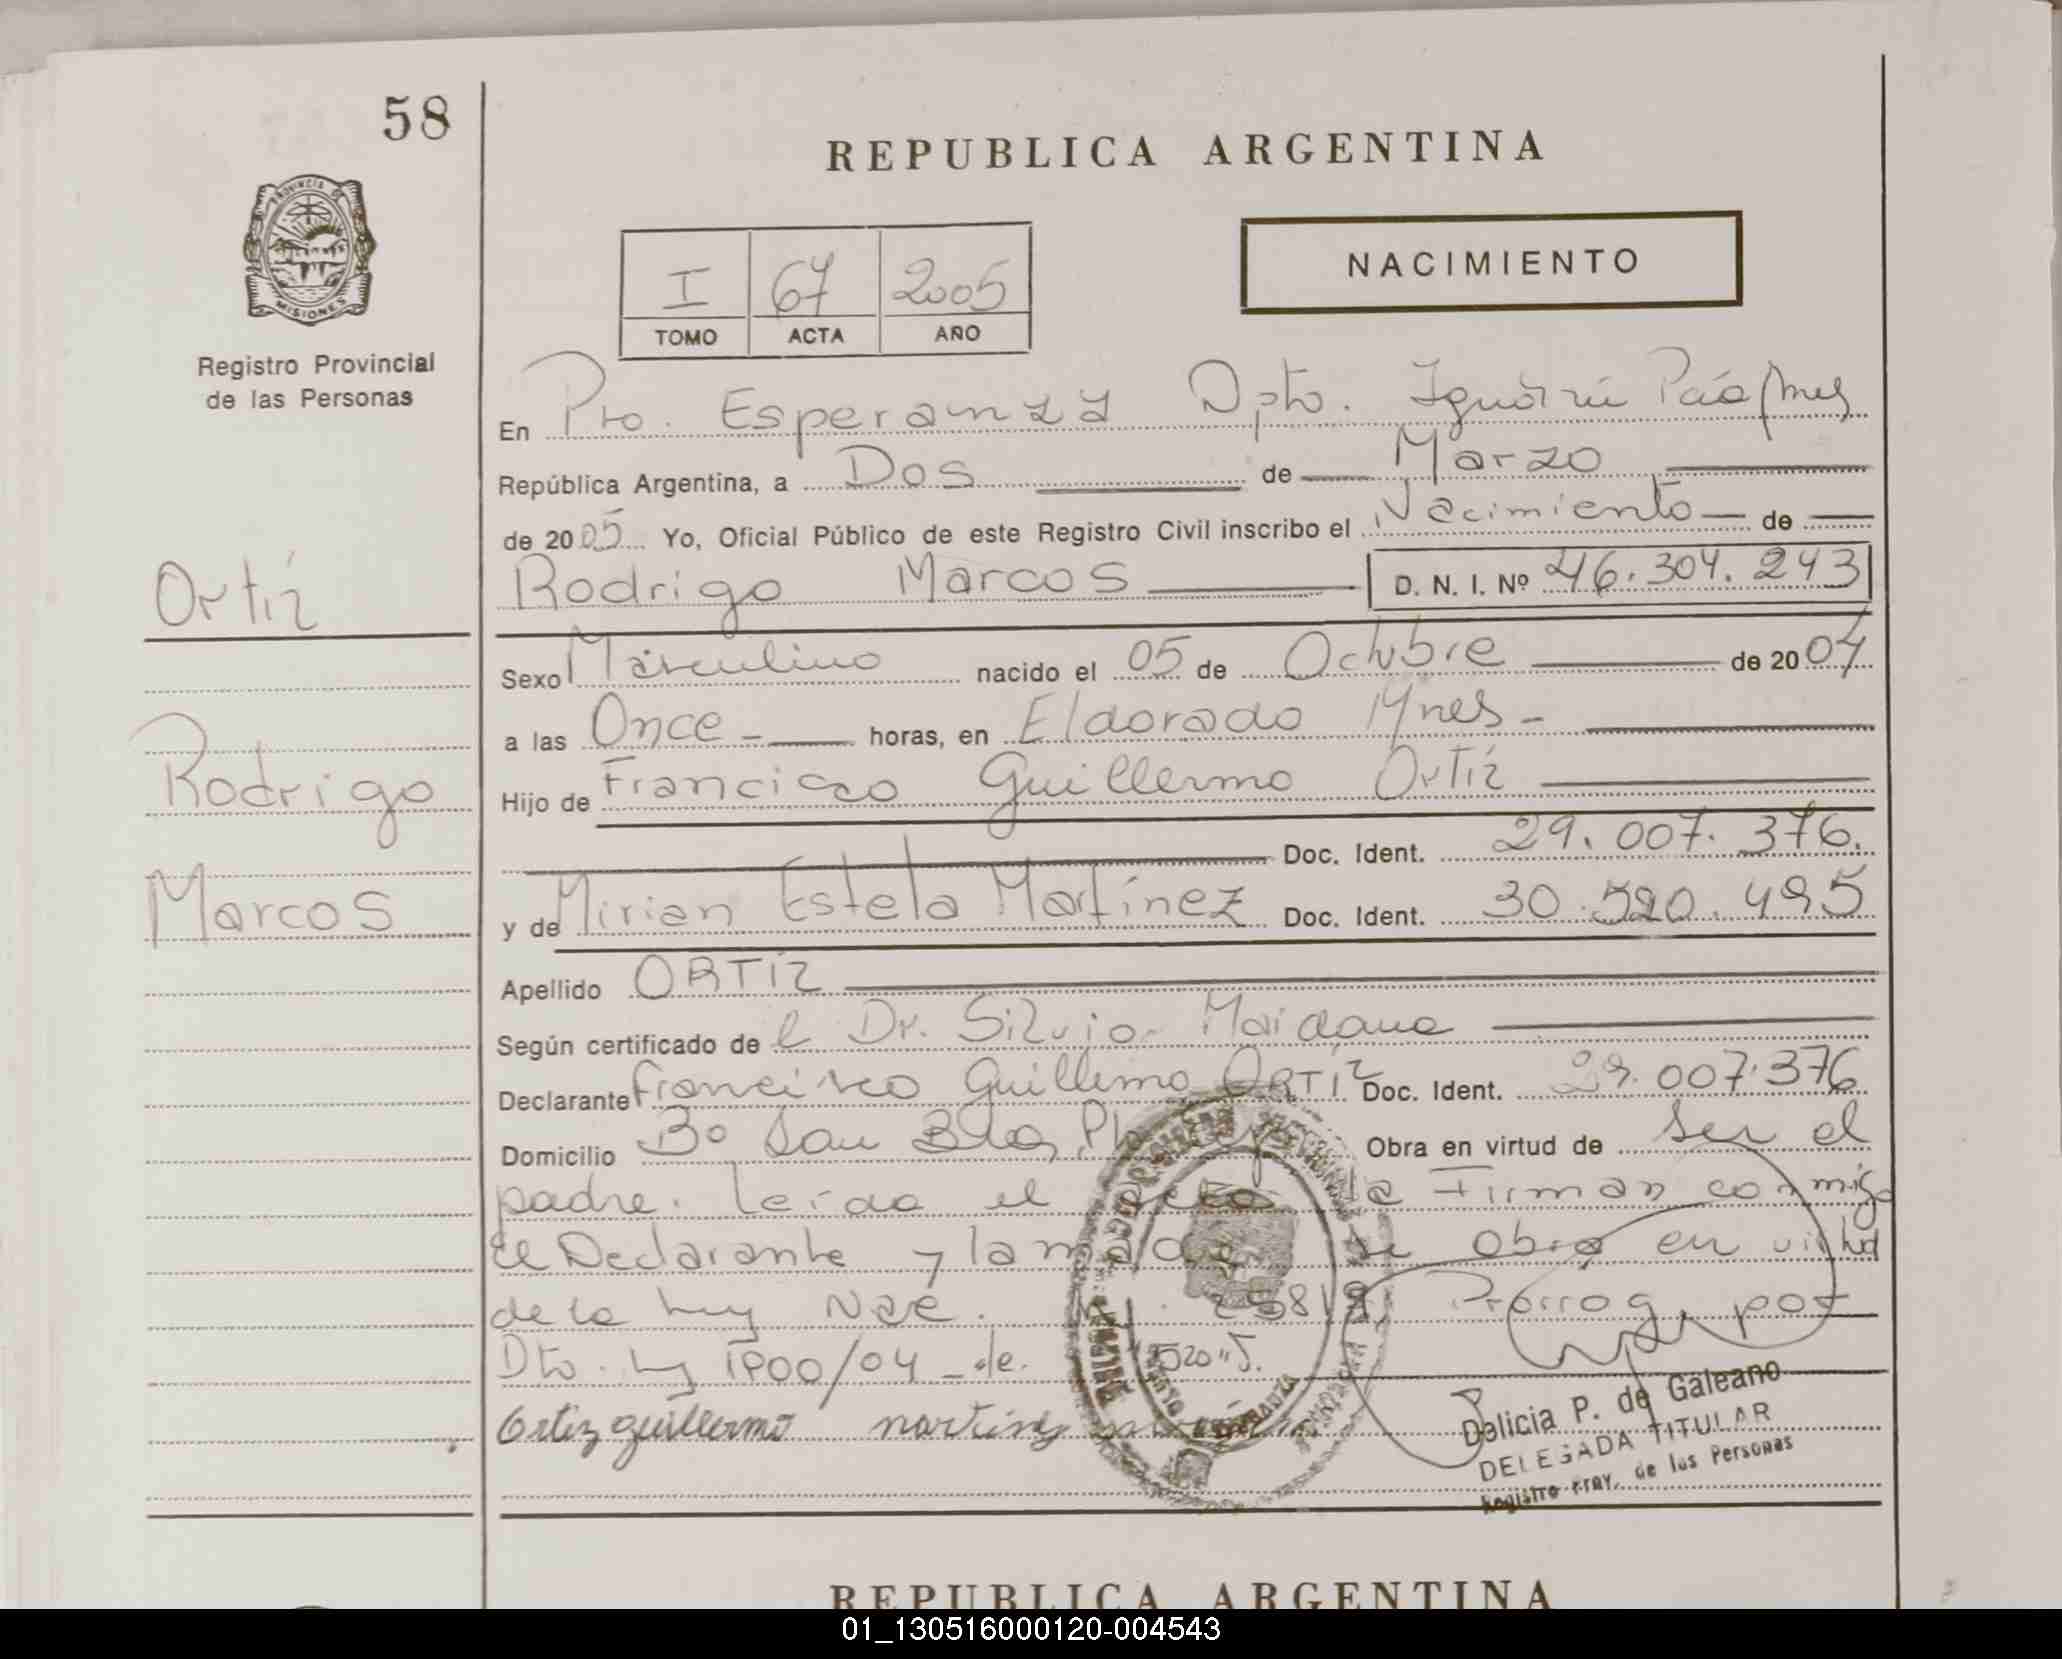 58
REPUBLICA ARGENTINA
PROVINCIA DE
MISIONES
Registro Provincial
de las Personas
I 67 2005
TOMO ACTA AÑO
NACIMIENTO
En Pto. Esperanza Dpto. Iguazú Pcia/Mnes
República Argentina, a Dos de Marzo
de 2005 Yo, Oficial Público de este Registro Civil inscribo el Nacimiento de
Rodrigo Marcos D. N. I. Nº 46.304.243
Ortíz
Sexo Masculino nacido el 05 de Octubre de 2004
a las Once horas, en Eldorado Mnes-
Rodrigo
Hijo de Francisco Guillermo Ortíz
Doc. Ident. 29.007.376.
Marcos
y de Mirian Estela Martínez Doc. Ident. 30.520.495
Apellido ORTIZ
Según certificado del Dr. Silvio Maidana
Declarante Francisco Guillermo ORTIZ Doc. Ident. 29.007.376
Domicilio Bº San Blas, Obra en virtud de ser el
padre. Leída el la Firman conmigo
el Declarante y la se obra en virtud
de la Ley Nac. Prorrog. por
Dto. 1900/04 de
Ortiz guillermo
Delicia P. de Galeano
DELEGADA TITULAR
Registro Prov. de las Personas
REPUBLICA ARGENTINA
01_130516000120-004543